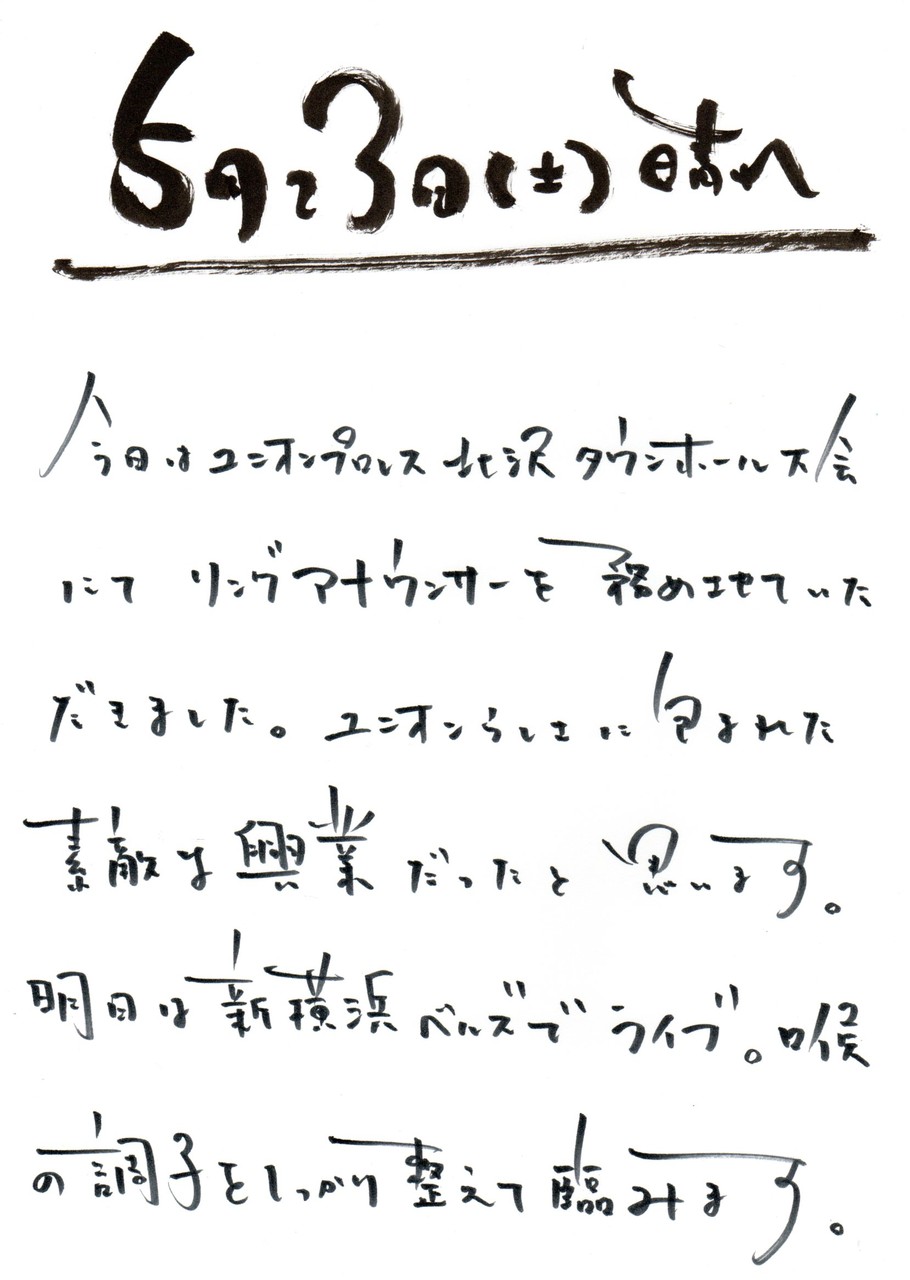 5月23日(土)晴れ
今日はユニオンプロレス北沢タウンホール大会
にてリングアナウンサーを務めさせていた
だきました。ユニオンらしさに包まれた
素敵な興業だったと思います。
明日は新横浜ベルズでライブ。喉
の調子をしっかり整えて臨みます。